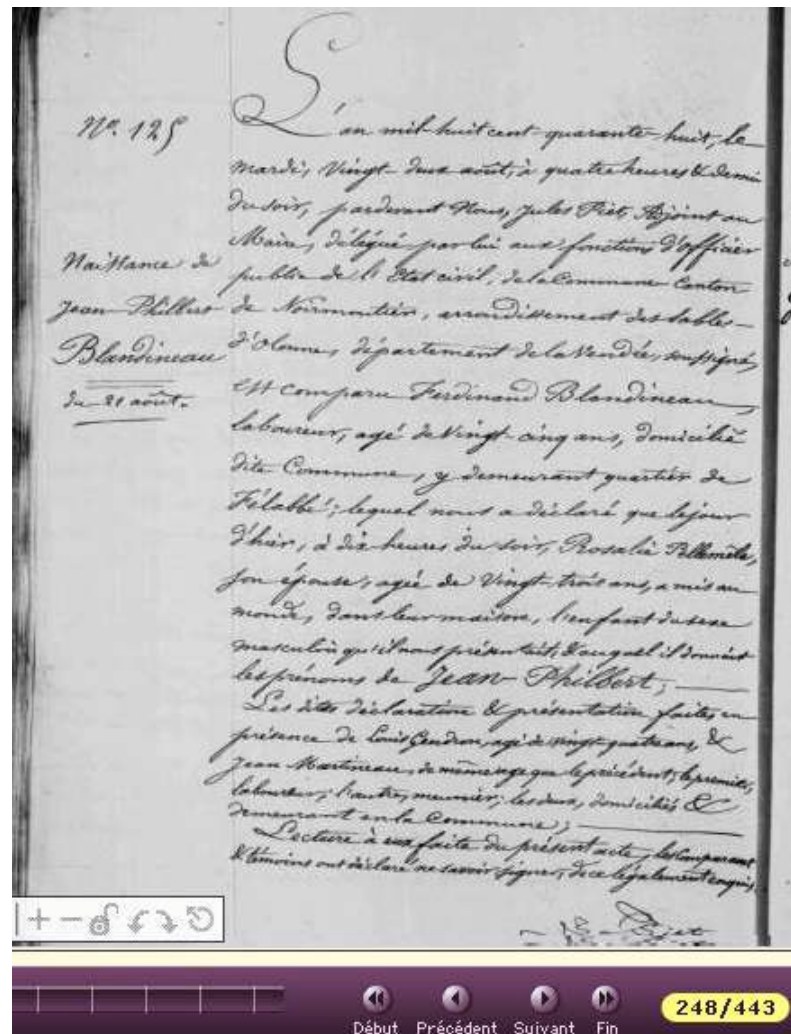 Nº. 125
Naissance de
Jean Philbert
Blandineau
du 21 août.
L'an mil-huit cent-quarante-huit, le
mardi, Vingt-deux août, à quatre heures & demie
du soir, pardevant Nous, Jules Piet, Adjoint au
Maire, délégué par lui aux fonctions d'officier
public de l'Etat civil, de la Commune Canton
de Noirmoutier, arrondissement des Sables-
d'Olonne, département de la Vendée, soussigné,
est comparu Ferdinand Blandineau,
laboureur, agé de Vingt-cinq ans, domicilié
dite Commune, y demeurant quartier de
; lequel nous a déclaré que le jour
d'hier, à dix heures du soir, Rosalie
son épouse, agée de Vingt-trois ans, a mis au
monde, dans leur maison, l'enfant du sexe
masculin qu'il nous présentait, & auquel il donnait
les prénoms de Jean Philbert;
Les dites déclaration & présentation faites en
présence de Louis Gendron, agé de vingt-quatre ans, &
Jean Martineau, de même age que le précédent; le premier,
laboureur; l'autre, meunier; les deux, domiciliés &
demeurant en la Commune;
Lecture à eux faite du présent acte, les Comparant
& témoins ont déclaré ne savoir signer, de ce légalement enquis.
Piet
Début Précédent Suivant Fin 248/443